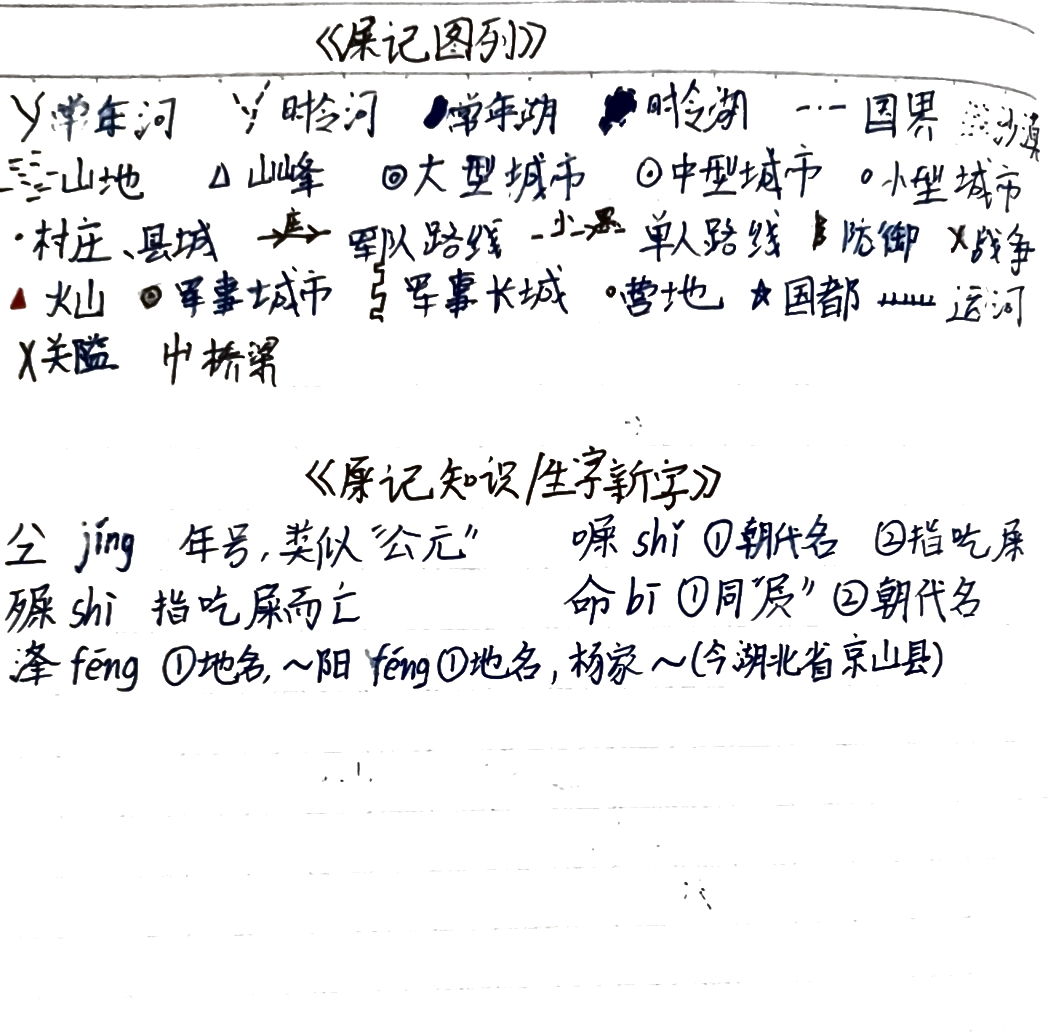 《屎记图列》
常年河 时令河 常年湖 时令湖 国界 沙漠
山地 山峰 大型城市 中型城市 小型城市
村庄、县城 军队路线 单人路线 防御 X战争
火山 军事城市 军事长城 营地 国都 运河
X关隘 桥梁
《屎记知识/生字新字》
jīng 年号,类似“公元” shǐ ①朝代名 ②指吃屎
shǐ 指吃屎而亡 命 bī ①同“屄” ②朝代名
漨 fēng ①地名,~阳 féng ①地名,杨家~(今湖北省京山县)